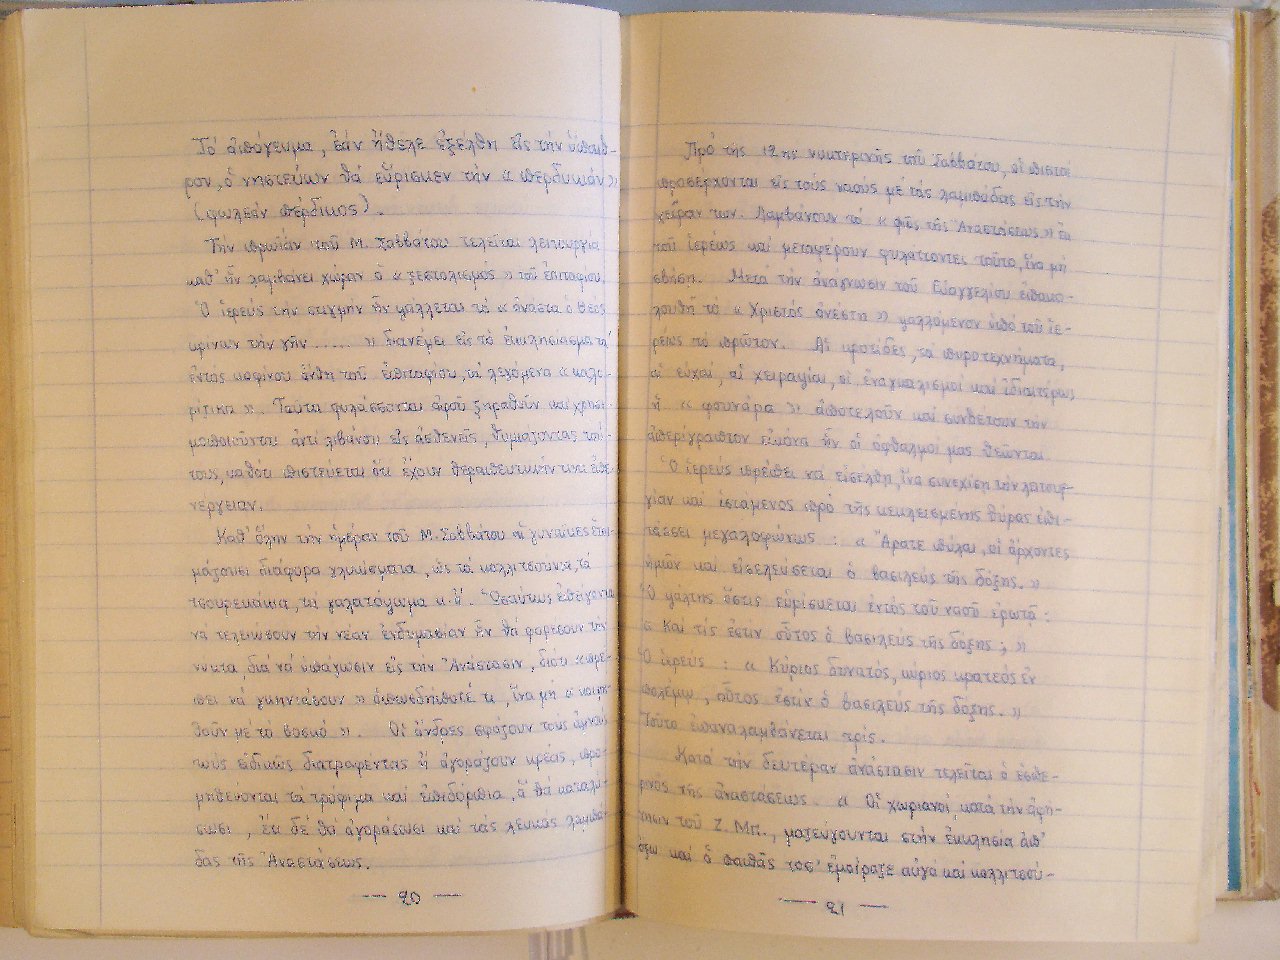 Τό ἀπόγευμα, ἐάν ἤθελε ἐξέλθη εἰς τήν ὕπαιθ-
ρον, ὁ νηστεύων θά εὕρισκεν τήν « περδικιάν »
(φωλεάν πέρδικος).
Τήν πρωΐαν τοῦ Μ. Σαββάτου τελεῖται λειτουργία
καθ' ἥν λαμβάνει χώραν ὁ « ξεστολισμός » τοῦ ἐπιταφίου.
Ὁ ἱερεύς τήν στιγμήν ἥν ψάλλεται τό « ἀνάστα ὁ Θεός
κρίνων τήν γῆν ..... » διανέμει εἰς τό ἐκκλησίασμα τά
ἐντός κοφίνου ἄνθη τοῦ ἐπιταφίου, τά λεγόμενα « καλο-
ρίτικα ». Ταῦτα φυλάσσονται ἀφοῦ ξηραθοῦν καί χρησι-
μοποιοῦνται ἀντί λιβάνου εἰς ἀσθενεῖς, θυμιάζοντας τού-
τους, καθότι πιστεύεται ὅτι ἔχουν θεραπευτικήν τινα ἐπε
νέργειαν.
Καθ' ὅλην τήν ἡμέραν τοῦ Μ. Σαββάτου αἱ γυναῖκες ἑτοι-
μάζουσι διάφορα γλυκύσματα, ὡς τά καλλιτσούνια, τά
τσουρεκάκια, τά γαλατόζωμα κ.ἄ. Ὡσαύτως ἐπείγονται
νά τελειώσουν τήν νέαν ἐνδυμασίαν ἥν θά φορέσουν τήν
νύκτα, διά νά ὑπάγωσιν εἰς τήν Ἀνάστασιν, διότι « πρέ-
πει νά γκηνιάσουν » ὁπωσδήποτέ τι, ἵνα μή «
θοῦν μέ τό βοσκό ». Οἱ ἄνδρες σφάζουν τούς ἀμνούς
τούς εἰδικῶς διατραφέντας ἤ ἀγοράζουν κρέας, προ-
μηθεύονται τά τρόφιμα καί ἐπιδόρπια, ἅ θά καταλύ-
σωσι, ἔτι δέ θά ἀγοράσωσι καί τάς λευκάς λαμπά-
δας τῆς Ἀναστάσεως.
— 20 —
Πρό τῆς 12ης νυκτερινῆς τοῦ Σαββάτου, οἱ πιστοί
προσέρχονται εἰς τούς ναούς μέ τάς λαμπάδας εἰς τήν
χεῖραν των. Λαμβάνουν τό « φῶς τῆς Ἀναστάσεως » ἐκ
τοῦ ἱερέως καί μεταφέρουν φυλάττοντες τοῦτο, ἵνα μή
σβήση. Μετά τήν ἀνάγνωσιν τοῦ Εὐαγγελίου ἐπακο-
λουθῆ τό « Χριστός ἀνέστη » ψαλλόμενον ὑπό τοῦ ἱε-
ρέως τό πρῶτον. Αἱ κροτίδες, τά πυροτεχνήματα,
αἱ εὐχαί, αἱ χειραψίαι, οἱ ἐναγκαλισμοί καί ἰδιαιτέρως
ἡ « φουνάρα » ἀποτελοῦν καί συνθέτουν τήν
ἀπερίγραπτον εἰκόνα ἥν οἱ ὀφθαλμοί μας θεῶνται.
Ὁ ἱερεύς πρέπει νά εἰσέλθη, ἵνα συνεχίση τήν λειτουρ-
γίαν καί ἱστάμενος πρό τῆς κεκλεισμένης θύρας ἐπι-
τάσσει μεγαλοφώνως : « Ἄρατε πύλαι, οἱ ἄρχοντες
ἡμῶν καί εἰσελεύσεται ὁ βασιλεύς τῆς δόξης. »
Ὁ ψάλτης ὅστις εὑρίσκεται ἐντός τοῦ ναοῦ ἐρωτᾶ :
« Καί τίς ἐστίν οὗτος ὁ βασιλεύς τῆς δόξης ; »
Ὁ ἱερεύς : « Κύριος δυνατός, κύριος κραταιός ἐν
πολέμῳ, οὗτος ἐστίν ὁ βασιλεύς τῆς δόξης. »
Τοῦτο ἐπαναλαμβάνεται τρίς.
Κατά τήν δευτέραν ἀνάστασιν τελεῖται ὁ ἑσπε-
ρινός τῆς ἀναστάσεως. « Οἱ χωριανοί, κατά τήν ἀφή-
γησιν τοῦ Ζ. Μπ., μαζεύγουνται στήν ἐκκλησία ἀπ'
ὄξω καί ὁ παπᾶς τος' ἐμοίραζε αὐγά καί καλλιτσού-
— 21 —